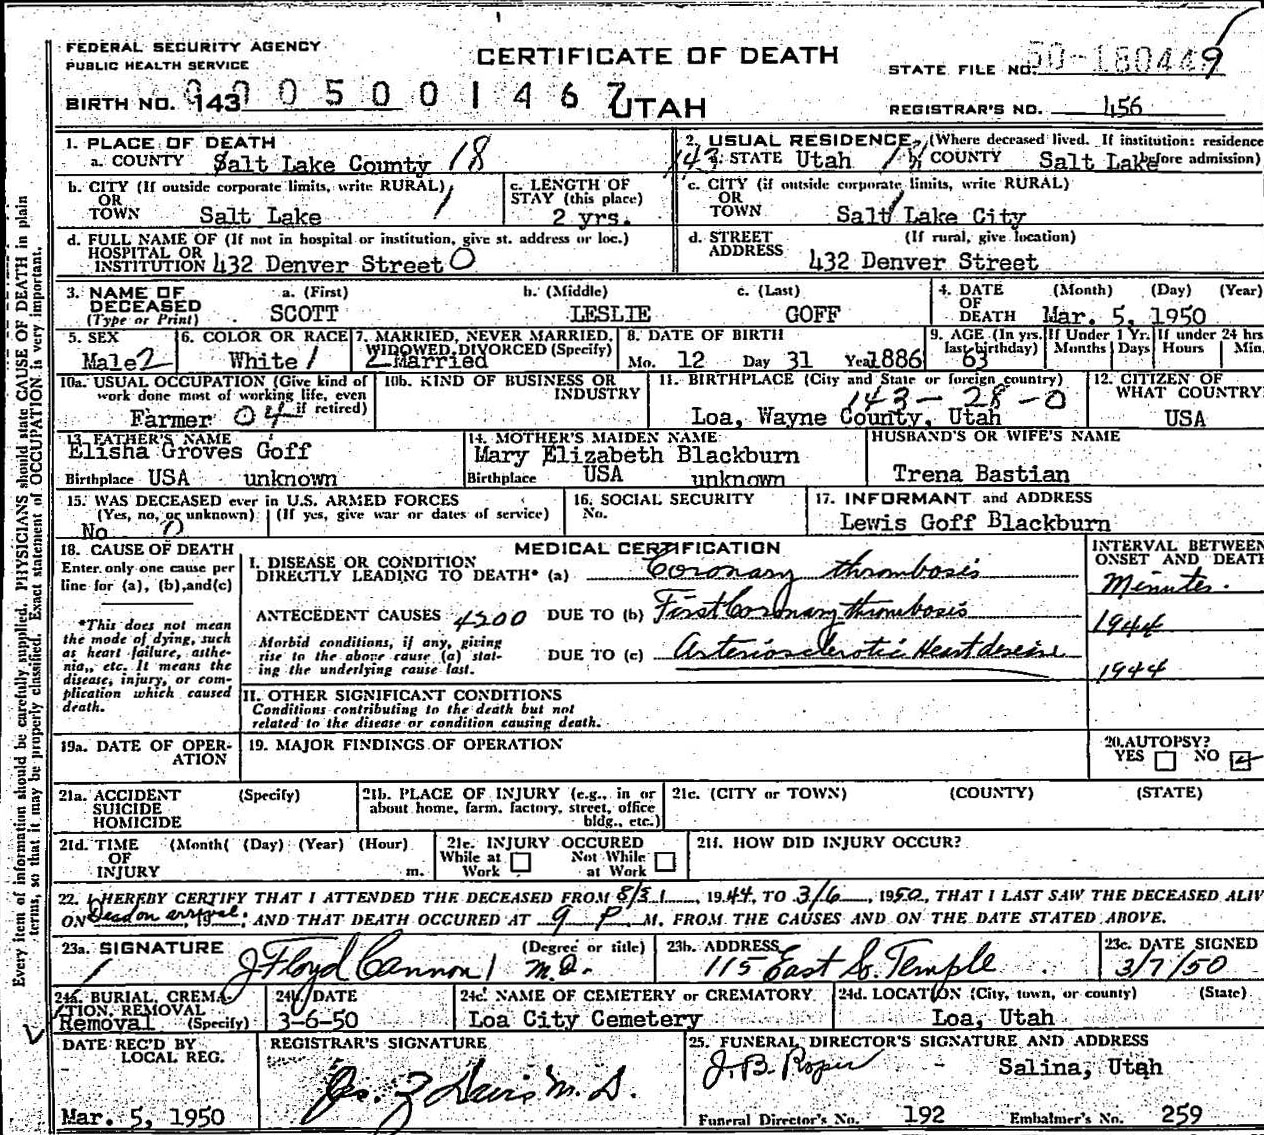 FEDERAL SECURITY AGENCY
PUBLIC HEALTH SERVICE
CERTIFICATE OF DEATH
STATE FILE NO. 50-180449
BIRTH NO. 143
0005001467
UTAH
REGISTRAR'S NO. 456
1. PLACE OF DEATH
a. COUNTY Salt Lake County 18
2. USUAL RESIDENCE (Where deceased lived. If institution: residence before admission)
143 a. STATE Utah b. COUNTY Salt Lake
b. CITY (If outside corporate limits, write RURAL)
OR
TOWN Salt Lake
c. LENGTH OF
STAY (this place)
2 yrs.
c. CITY (if outside corporate limits, write RURAL)
OR
TOWN Salt Lake City
d. FULL NAME OF (If not in hospital or institution, give st. address or loc.)
HOSPITAL OR
INSTITUTION 432 Denver Street 0
d. STREET (If rural, give location)
ADDRESS 432 Denver Street
3. NAME OF
DECEASED
(Type or Print)
a. (First) b. (Middle) c. (Last)
SCOTT LESLIE GOFF
4. DATE (Month) (Day) (Year)
OF
DEATH Mar. 5, 1950
5. SEX
Male 2
6. COLOR OR RACE
White 1
7. MARRIED, NEVER MARRIED,
WIDOWED, DIVORCED (Specify)
2 Married
8. DATE OF BIRTH
Mo. 12 Day 31 Year 1886
9. AGE (In yrs. last birthday)
63
If Under 1 Yr.
Months Days
If under 24 hrs
Hours Min.
10a. USUAL OCCUPATION (Give kind of
work done most of working life, even
if retired)
Farmer 04
10b. KIND OF BUSINESS OR
INDUSTRY
11. BIRTHPLACE (City and State or foreign country)
143-28-0
Loa, Wayne County, Utah
12. CITIZEN OF
WHAT COUNTRY?
USA
13. FATHER'S NAME
Elisha Groves Goff
Birthplace USA unknown
14. MOTHER'S MAIDEN NAME
Mary Elizabeth Blackburn
Birthplace USA unknown
HUSBAND'S OR WIFE'S NAME
Trena Bastian
15. WAS DECEASED ever in U.S. ARMED FORCES
(Yes, no, or unknown) (If yes, give war or dates of service)
No 0
16. SOCIAL SECURITY
No.
17. INFORMANT and ADDRESS
Lewis Goff Blackburn
18. CAUSE OF DEATH
Enter only one cause per
line for (a), (b), and (c)
*This does not mean
the mode of dying, such
as heart failure, asthe-
nia, etc. It means the
disease, injury, or com-
plication which caused
death.
MEDICAL CERTIFICATION
I. DISEASE OR CONDITION
DIRECTLY LEADING TO DEATH* (a) Coronary thrombosis
ANTECEDENT CAUSES 4200 DUE TO (b) First Coronary thrombosis
Morbid conditions, if any, giving
rise to the above cause (a) stat-
ing the underlying cause last.
DUE TO (c) Arteriosclerotic Heart desease
INTERVAL BETWEEN
ONSET AND DEATH
Minutes.
1944
1944
II. OTHER SIGNIFICANT CONDITIONS
Conditions contributing to the death but not
related to the disease or condition causing death.
19a. DATE OF OPER-
ATION
19. MAJOR FINDINGS OF OPERATION
20. AUTOPSY?
YES NO
21a. ACCIDENT (Specify)
SUICIDE
HOMICIDE
21b. PLACE OF INJURY (e.g., in or
about home, farm, factory, street, office
bldg., etc.)
21c. (CITY or TOWN) (COUNTY) (STATE)
21d. TIME (Month( (Day) (Year) (Hour)
OF
INJURY m.
21e. INJURY OCCURED
While at Work Not While at Work
21f. HOW DID INJURY OCCUR?
22. I HEREBY CERTIFY THAT I ATTENDED THE DECEASED FROM 8/31, 1944, TO 3/6, 1950, THAT I LAST SAW THE DECEASED ALIV
ON Dead on arrival, 19 , AND THAT DEATH OCCURED AT 9 P. M. FROM THE CAUSES AND ON THE DATE STATED ABOVE.
23a. SIGNATURE (Degree or title)
J Floyd Cannon M.D.
23b. ADDRESS
115 East So. Temple
23c. DATE SIGNED
3/7/50
24a. BURIAL, CREMA-
TION, REMOVAL
Removal (Specify)
24b. DATE
3-6-50
24c. NAME OF CEMETERY or CREMATORY
Loa City Cemetery
24d. LOCATION (City, town, or county) (State)
Loa, Utah
DATE REC'D BY
LOCAL REG.
Mar. 5, 1950
REGISTRAR'S SIGNATURE
25. FUNERAL DIRECTOR'S SIGNATURE AND ADDRESS
J. B. Roper - Salina, Utah
Funeral Director's No. 192 Embalmer's No. 259
Every item of information should be carefully supplied. PHYSICIANS should state CAUSE OF DEATH in plain
terms, so that it may be properly classified. Exact statement of OCCUPATION is very important.